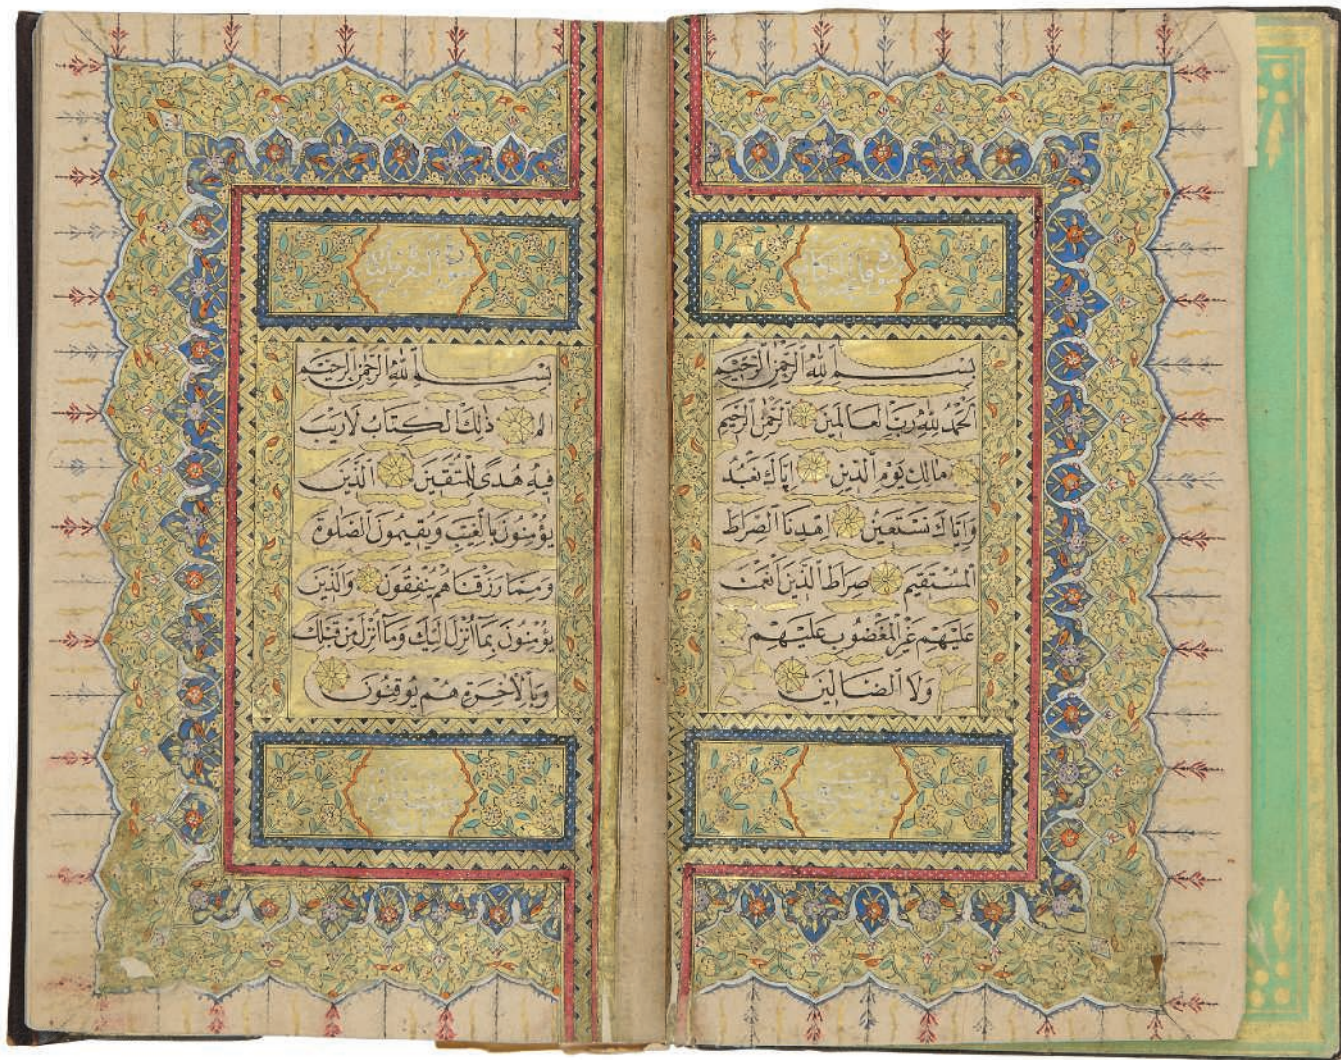 بسم الله الرحمن الرحيم
الحمد لله رب العالمين الرحمن الرحيم
مالك يوم الدين اياك نعبد
واياك نستعين اهدنا الصراط
المستقيم صراط الذين انعمت
عليهم غير المغضوب عليهم
ولا الضالين
بسم الله الرحمن الرحيم
الم ذلك الكتاب لا ريب
فيه هدى للمتقين الذين
يؤمنون بالغيب ويقيمون الصلوة
ومما رزقناهم ينفقون والذين
يؤمنون بما انزل اليك وما انزل من قبلك
وبالاخرة هم يوقنون